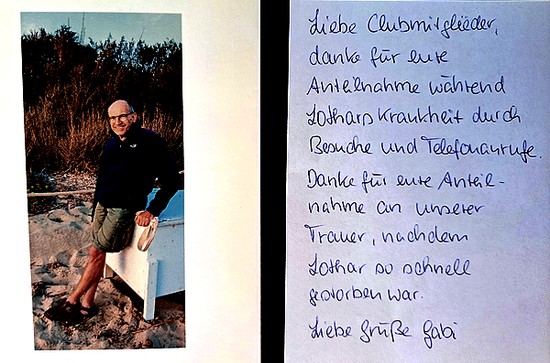 Liebe Clubmitglieder,
danke für eure
Anteilnahme während
Lothars Krankheit durch
Besuche und Telefonanrufe.
Danke für eure Anteil-
nahme an unserer
Trauer, nachdem
Lothar so schnell
gestorben war.
Liebe Grüße Gabi